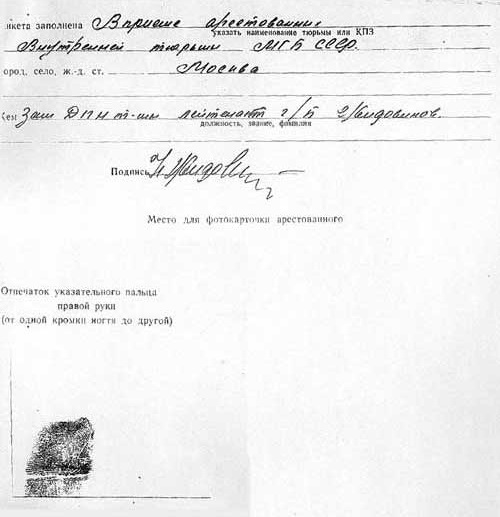 нкета заполнена В приеме арестованных
указать наименование тюрьмы или КПЗ
Внутренней тюрьмы МГБ СССР.
ород, село, ж.-д. ст. Москва
Зам ДПН т-мы лейтенант г/б
должность, звание, фамилия
Подпись
Место для фотокарточки арестованного
Отпечаток указательного пальца
правой руки
(от одной кромки ногтя до другой)